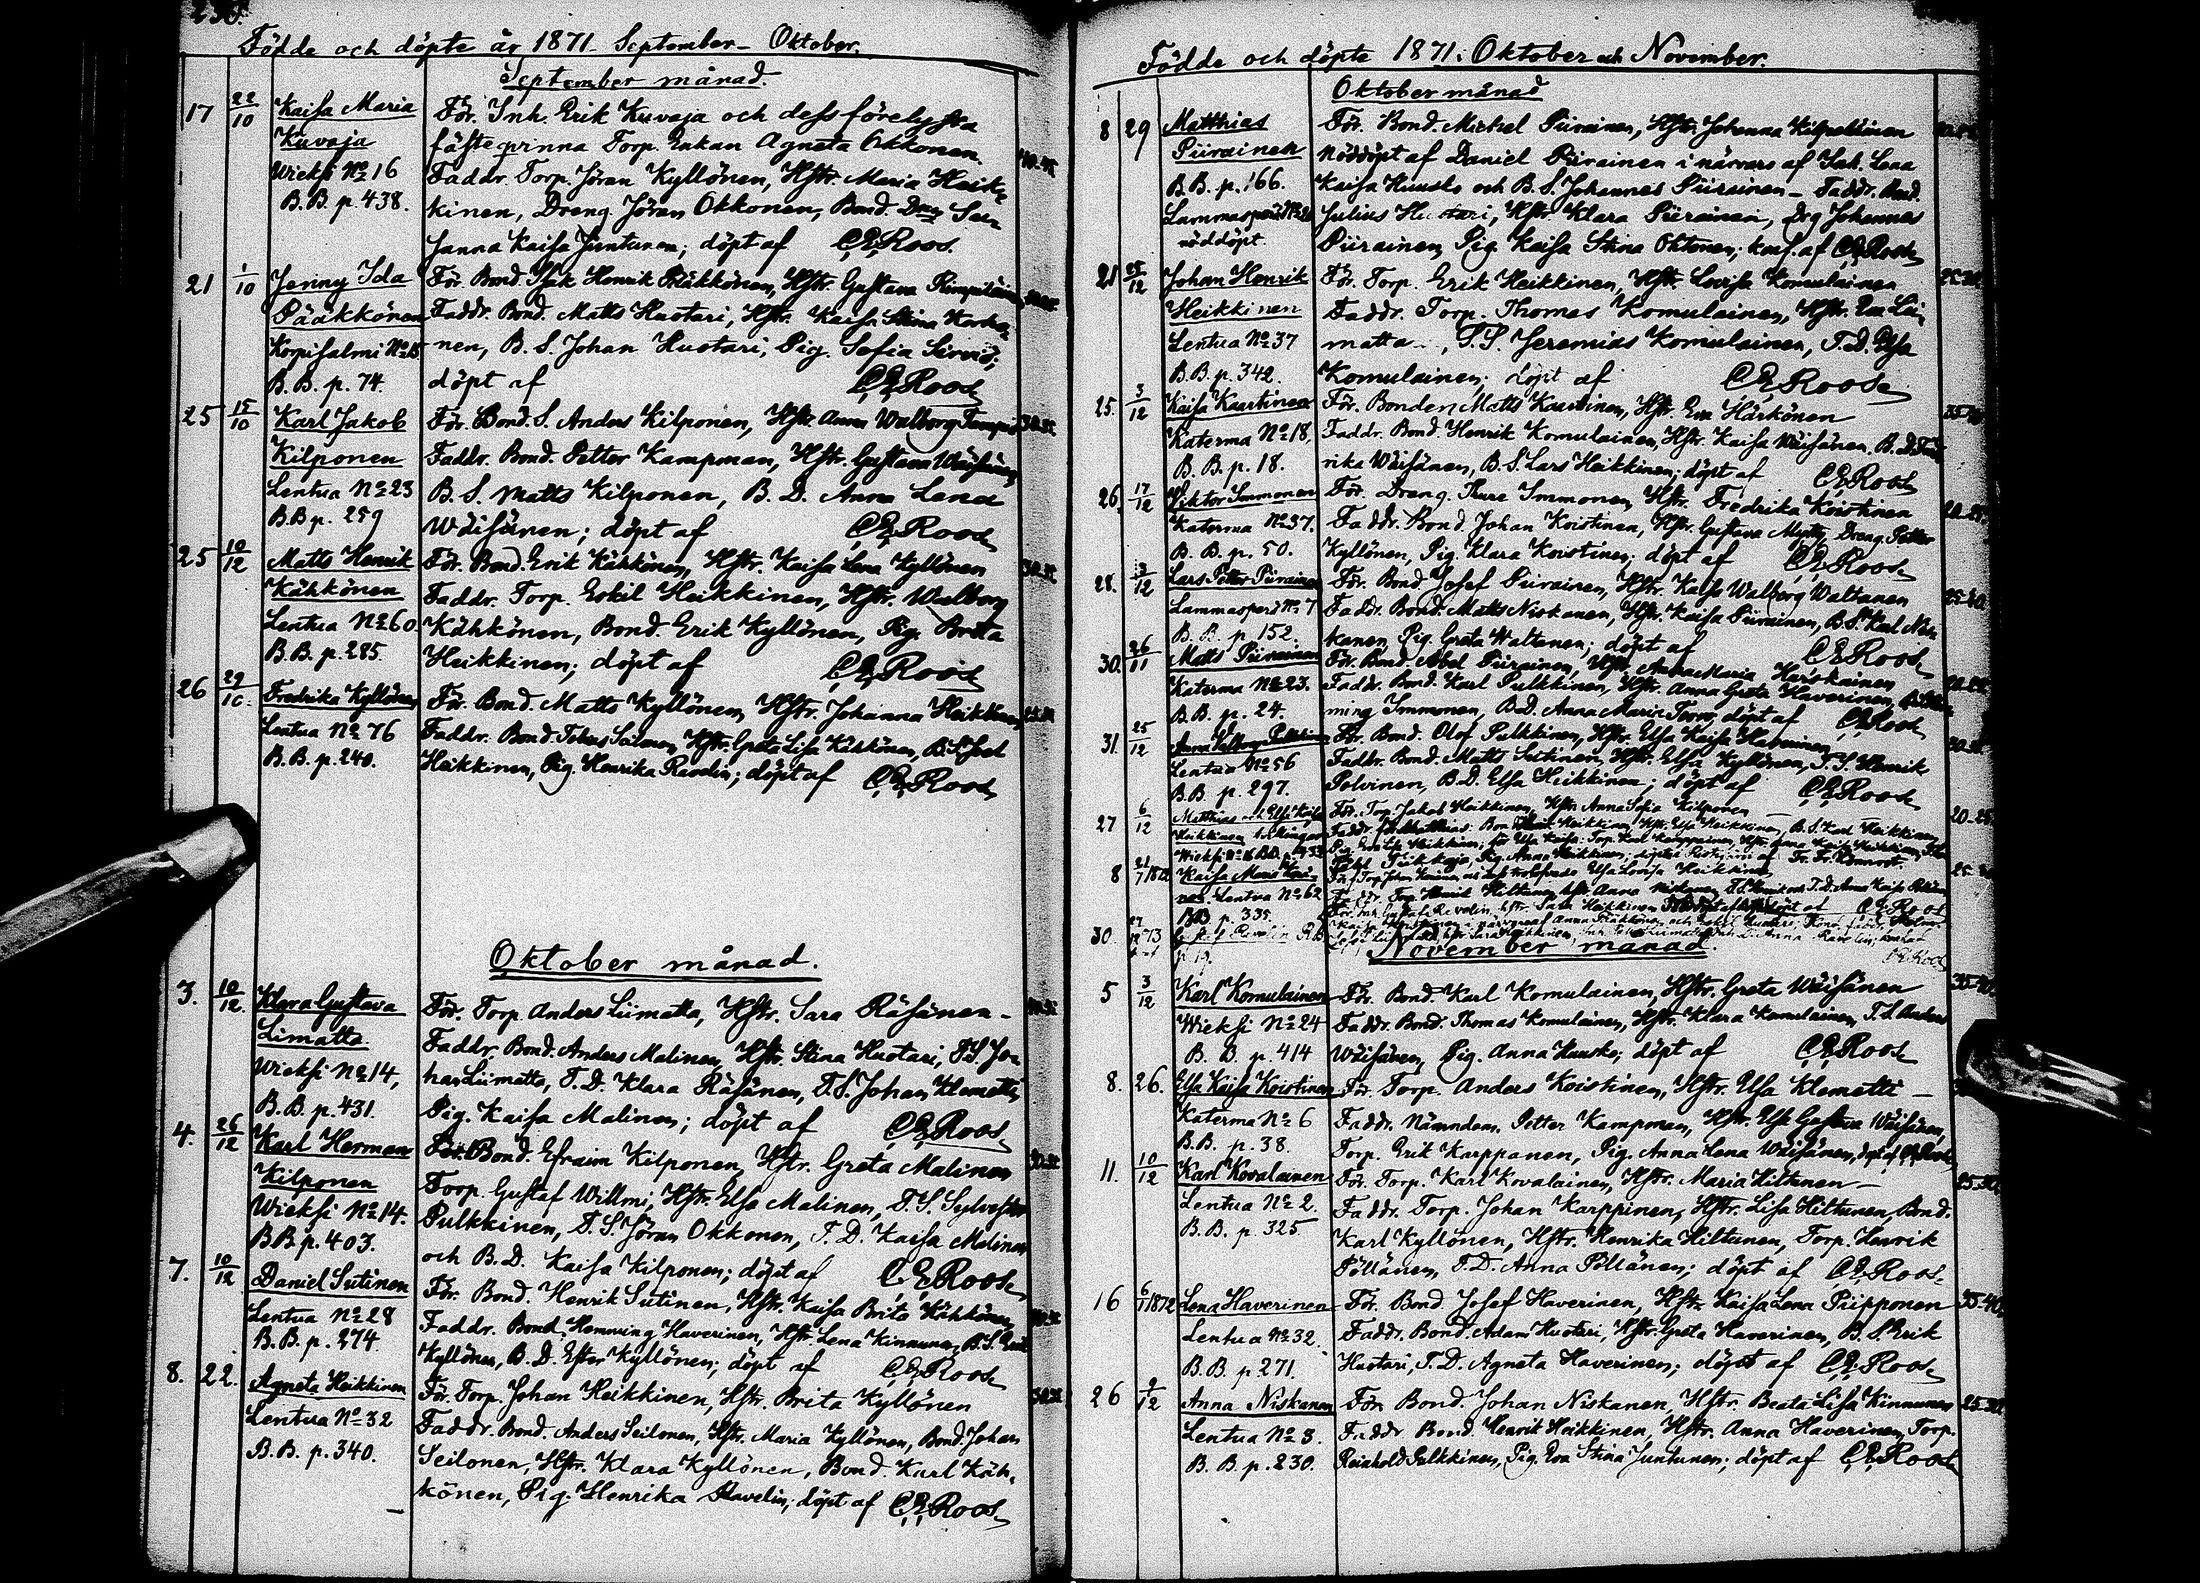 230.
Födde och döpte år 1871. September – Oktober.
September månad.
17 22/10 Kaisa Maria För. Inh. Erik Kuvaja och dess förelyssta
Kuvaja fästeqvinna Torp. Enkan Agneta Okkonen.
Wieksi No 16 Faddr. Torp. Jöran Kyllönen, Hstr. Maria Heik-
B.B. p. 438. kinen, Dreng Jöran Okkonen, Bond. Dotter Su-
sanna Kaisa Juntunen; döpt af C.E. Roos.
21 1/10 Jenny Ida För. Bond. Isak Henrik Pääkkönen, Hstr. Gustava
Pääkkönen Faddr. Bond. Matts Huotari, Hstr. Kaisa Stina Korho-
Korpisalmi No 15 nen, B. S. Johan Huotari, Pig. Sofia
B.B. p. 74. döpt af C.E. Roos
25 15/10 Karl Jakob För. Bond. S. Anders Kilponen, Hstr. Anna Walborg
Kilponen Faddr. Bond. Petter Kampman, Hstr. Gustava Wäisänen,
Lentua No 23 B. S. Matts Kilponen, B. D. Anna Lena
B.B. p. 259 Wäisänen; döpt af C.E. Roos
25 10/12 Matts Henrik För. Bond. Erik Kähkönen, Hstr. Kaisa Lena Kyllönen
Kähkönen Faddr. Torp. Eskil Heikkinen, Hstr. Walborg
Lentua No 60 Kähkönen, Bond. Erik Kyllönen, Pig. Brita
B.B. p. 285. Heikkinen; döpt af C.E. Roos
26 29/10. Fredrika Kyllönen För. Bond. Matts Kyllönen, Hstr. Johanna Heikkinen,
Lentua No 76 Faddr. Bond. Hstr. Greta Lisa Kähkönen, B. S.
B.B. p. 240. Heikkinen, Pig. Henrika Ravelin; döpt af C.E. Roos
Oktober månad.
3. 10/12. Klara Gustava För. Torp. Anders Liimatta, Hstr. Sara Räsänen –
Limatta. Faddr. Bond. Anders Malinen, Hstr. Stina Huotari, T.S. Jo-
Wieksi No 14, han Liimatta, T. D. Klara Räsänen, T. S. Johan Klemetti,
B.B. p. 431. Pig. Kaisa Malinen; döpt af C.E. Roos
4. 26/12 Karl Herman För. Bond. Efraim Kilponen, Hstr. Greta Malinen
Kilponen Torp. Gustaf Willmi, Hstr. Elsa Malinen, T. S. Sylvester
Wieksi No 14. Pulkkinen, T. S. Jöran Okkonen, T. D. Kaisa Malinen
B.B. p. 403. och B. D. Kaisa Kilponen; döpt af C.E. Roos
7. 10/12 Daniel Sutinen För. Bond. Henrik Sutinen, Hstr. Kaisa Brita Kähkönen,
Lentua No 28 Faddr. Bond. Hemming Haverinen, Hstr. Lena Kinnunen, B. S.
B.B. p. 274. Kyllönen, B. D. Ester Kyllönen; döpt af C.E. Roos
8. 22. Agneta Heikkinen För. Torp. Johan Heikkinen, Hstr. Brita Kyllönen
Lentua No 32 Faddr. Bond. Anders Seilonen, Hstr. Maria Kyllönen, Bond. Johan
B.B. p. 340. Seilonen, Hstr. Klara Kyllönen, Bond. Karl Käh-
könen, Pig. Henrika Ravelin; döpt af C.E. Roos
Födde och döpte 1871. Oktober och November.
Oktober månad
8 29 Matthias För. Bond. Michel Piirainen, Hstr. Johanna Kilpeläinen
Piirainen Nöddöpt af Daniel Piirainen i närvaro af Inh. Lena
B.B. p. 166. Kaisa Huusko och B. S. Johannes Piirainen – Faddr. Bond.
Lammasperä No 20 Julius Huotari, Hstr. Klara Piirainen, Drg Johannes
nöddöpt. Piirainen, Pig. Kaisa Stina Okkonen; konf. af C.E. Roos
21 25/12 Johan Henrik För. Torp. Erik Heikkinen, Hstr. Lovisa Komulainen
Heikkinen Faddr. Torp. Thomas Komulainen, Hstr. Eva Lii-
Lentua No 37 matta, T. S. Jeremias Komulainen, T. D. Elsa
B.B. p. 342. Komulainen; döpt af C.E. Roos
25. 3/12 Kaisa Kaartinen För. Bonden Matts Kaartinen, Hstr. Eva Härkönen 35-40
Katerma No 18. Faddr. Bond. Henrik Komulainen, Hstr. Kaisa Wäisänen, B. D. Fred-
B. B. p. 18. rika Wäisänen, B. S. Lars Heikkinen; döpt af C.E. Roos
26. 17/12 Viktor Immonen För. Dreng. Ture Immonen, Hstr. Fredrika Koistinen 20-25.
Katerma No 37. Faddr. Bond. Johan Koistinen, Hstr. Gustava Mytty, Dreng. Petter
B. B. p. 50. Kyllönen, Pig. Klara Koistinen; döpt af C.E. Roos
28. 3/12 Lars Petter Piirainen För. Bond. Josef Piirainen, Hstr. Kaisa Walborg Waltanen 35-40
Lammasperä No 7 Faddr. Bond. Matts Niskanen, Hstr. Kaisa Piirainen, B. S. Karl Nis-
B. B. p. 152. kanen, Pig. Greta Waltanen; döpt af C.E. Roos
30. 26/11 Matts Piirainen För. Bond. Abel Piirainen, Hstr. Anna Maria
Katerma No 23. Faddr. Bond. Karl Pulkkinen, Hstr. Anna Greta Haverinen,
B. B. p. 24. ming Immonen, B. D. Anna Maria Tervo, döpt af C.E. Roos
31. 25/12 Anna Valborg Pulkkinen För. Bond. Olof Pulkkinen, Hstr. Elsa Kaisa Haverinen
Lentua No 56 Faddr. Bond. Matts Sutinen, Hstr. Elsa Kyllönen, T. S. Henrik
B.B. p. 297. Polvinen, B. D. Elsa Heikkinen; döpt af C.E. Roos
27 6/12 Matthias och Elsa Kaisa För. Torp. Jakob Heikkinen, Hstr. Anna Sofia Kilponen 20-25
Heikkinen tvillingar Faddr. för Matthias: Bond. Heikkinen, Hstr. Elsa Heikkinen, B. S. Karl Heikkinen
8 Kaisa Maria
nen. Lentua No 62
B.B. p. 335.
30.
November månad.
C.E. Roos
5 3/12 Karl Komulainen För. Bond. Karl Komulainen, Hstr. Greta Wäisänen 35-40.
Wieksi No 24 Faddr. Bond. Thomas Komulainen, Hstr. Klara Komulainen, T. S. Anders
B. B. p. 414 Wäisänen, Pig. Anna Huusko; döpt af C.E. Roos
8. 26. Elsa Kaisa Koistinen För. Torp. Anders Koistinen, Hstr. Elsa Klemetti –
Katerma No 6 Faddr. Nämndem. Petter Kamponen, Hstr. Elsa Gustava Wäisänen,
B.B. p. 38. Torp. Erik Karppanen, Pig. Anna Lena Wäisänen, döpt af C.E. Roos
11. 10/12 Karl Kovalainen För. Torp. Karl Kovalainen, Hstr. Maria Hiltunen – 25-30.
Lentua No 2. Faddr. Torp. Johan Karppinen, Hstr. Lisa Hiltunen, Bond.
B. B. p. 325. Karl Kyllönen, Hstr. Henrika Hiltunen, Torp. Henrik
Pöllänen, T. D. Anna Pöllänen; döpt af C.E. Roos
16 6/1 1872 Lena Haverinen För. Bond. Josef Haverinen, Hstr. Kaisa Lena Piipponen 35-40.
Lentua No 32. Faddr. Bond. Adam Huotari, Hstr. Greta Haverinen, B. S. Erik
B.B. p. 271. Huotari, T. D. Agneta Haverinen; döpt af C.E. Roos
26 2/12 Anna Niskanen För. Bond. Johan Niskanen, Hstr. Beata Lisa Kinnunen 25-30.
Lentua No 3. Faddr. Bond. Henrik Heikkinen, Hstr. Anna Haverinen, Torp.
B. B. p. 230. Reinhold Pulkkinen, Pig. Eva Stina Juntunen; döpt af C.E. Roos